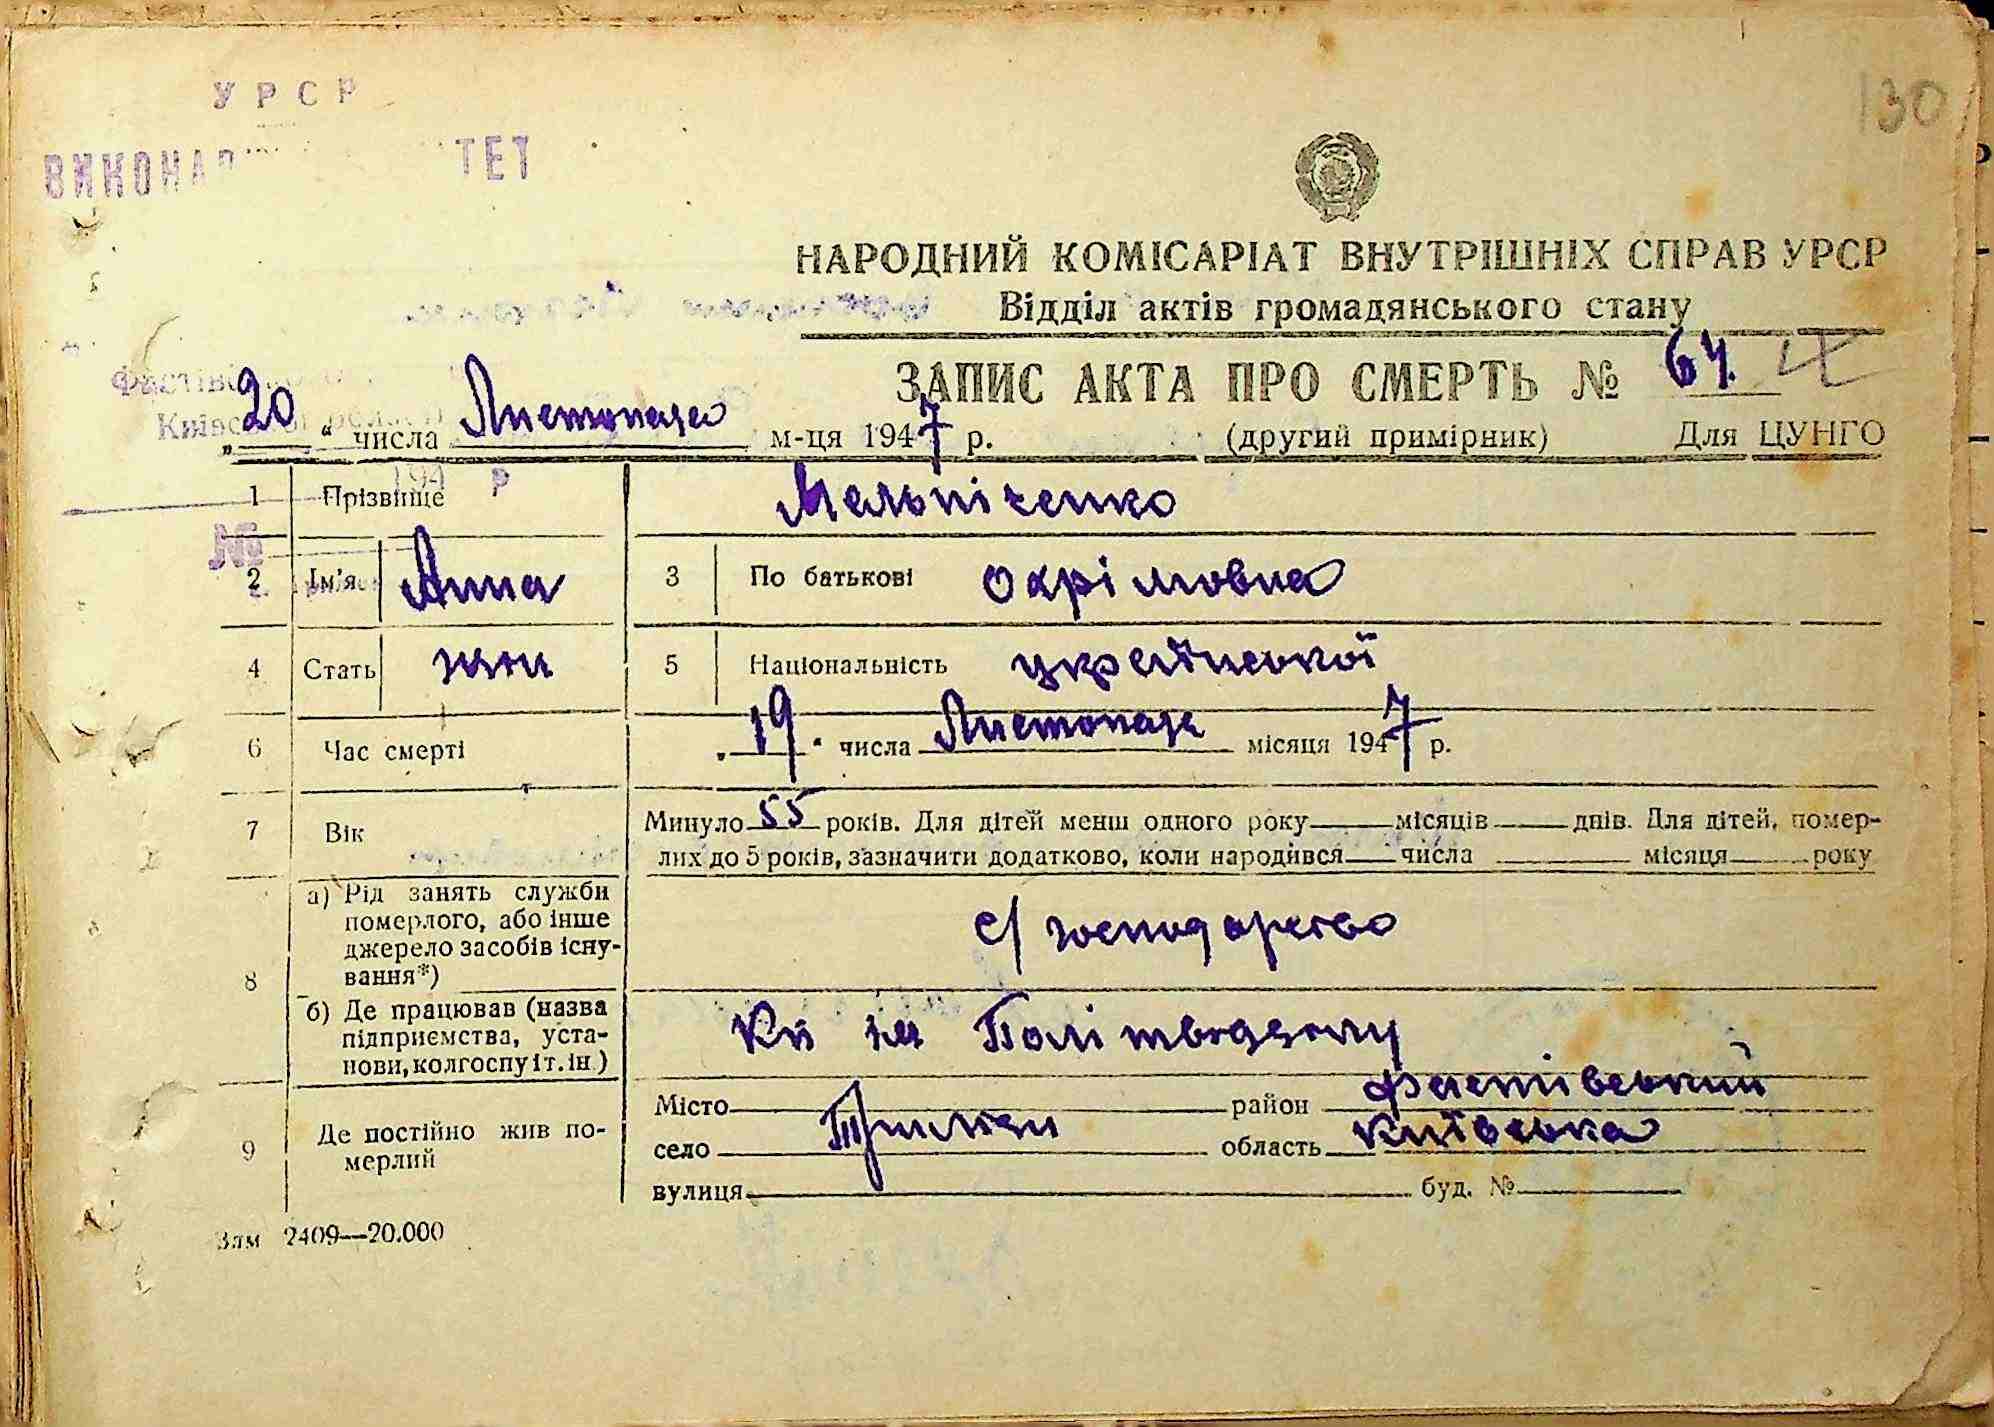 УРСР
130
НАРОДНИЙ КОМІСАРІАТ ВНУТРІШНІХ СПРАВ УРСР
Відділ актів громадянського стану
ЗАПИС АКТА ПРО СМЕРТЬ № 64.
„20“ числа Листопада м-ця 1947 р. (другий примірник) Для ЦУНГО
194 р
№
1 Прізвище Мельніченко
2 Ім'я Анна 3 По батькові Охрімовна
4 Стать жін 5 Національність української
6 Час смерті „19“ числа Листопада місяця 1947 р.
7 Вік Минуло 55 років. Для дітей менш одного року місяців днів. Для дітей, помер-
лих до 5 років, зазначити додатково, коли народився числа місяця року
8 а) Рід занять служби
померлого, або інше
джерело засобів існу-
вання*)
с/господарство
б) Де працював (назва
підприємства, уста-
нови, колгоспу і т. ін.)
Кп ім Політвідділу
9 Де постійно жив по-
мерлий
Місто район Фастівський
село область Київська
вулиця буд. №
Зам 2409—20.000